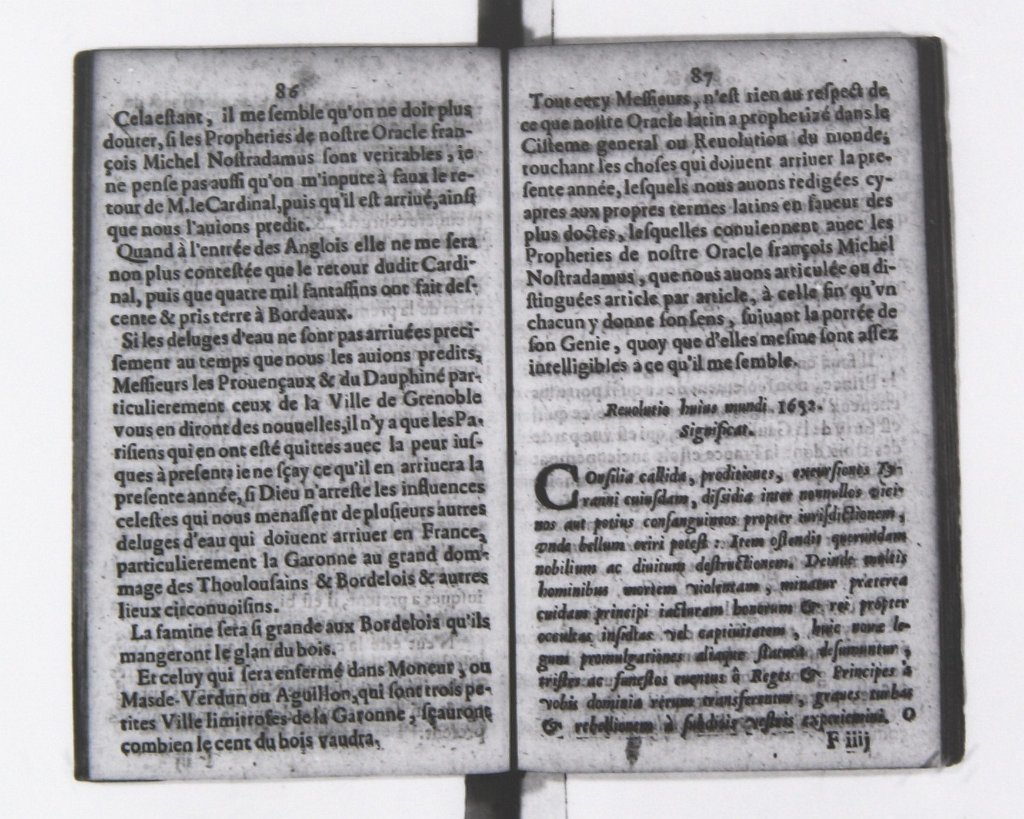 86
Cela estant, il me semble qu'on ne doit plus
douter, si les Propheries de nostre Oracle fran-
çois Michel Nostradamus sont veritables, ie
ne pense pas aussi qu'on m'inpute à faux le re-
tour de M. le Cardinal, puis qu'il est arriué, ainsi
que nous l'auions predit.
Quand à l'entrée des Anglois elle ne me sera
non plus contestée que le retour dudit Cardi-
nal, puis que quatre mil fantassins ont fait des-
cente & pris terre à Bordeaux.
Si les deluges d'eau ne sont pas arriuées preci-
sement au temps que nous les auions predits,
Messieurs les Prouençaux & du Dauphiné par-
ticulierement ceux de la Ville de Grenoble
vous en diront des nouuelles, il n'y a que les Pa-
risiens qui en ont esté quittes auec la peur ius-
ques à present: ie ne sçay ce qu'il en arriuera la
presente année, si Dieu n'arreste les influences
celestes qui nous menassent de plusieurs autres
deluges d'eau qui doiuent arriuer en France,
particulierement la Garonne au grand dom-
mage des Thoulousains & Bordelois & autres
lieux circonuoisins.
La famine sera si grande aux Bordelois qu'ils
mangeront le glan du bois.
Et celuy qui sera enfermé dans Moneur, ou
Masde-Verdun ou Aguillon, qui sont trois pe-
tites Ville limitrofes de la Garonne, sçauront
combien le cent du bois vaudra.
87
Tout cecy Messieurs, n'est rien au respect de
ce que nostre Oracle latin a prophetizé dans le
Cisteme general ou Reuolution du monde,
touchant les choses qui doiuent arriuer la pre-
sente année, lesquels nous auons redigées cy-
apres aux propres termes latins en faueur des
plus doctes, lesquelles conuiennent auec les
Propheries de nostre Oracle françois Michel
Nostradamus, que nous auons articulée ou di-
stinguées article par article, à celle fin qu'vn
chacun y donne son sens, suiuant la portée de
son Genie, quoy que d'elles mesme sont assez
intelligibles à ce qu'il me semble.
Reuolutio huius mundi. 1652.
Significat.
COnsilia callida, proditiones, excursiones Ty-
ranni cuiusdam, dissidia inter nonnullos vici-
nos aut potius consanguineos propter iurisdictionem,
vnde bellum oriri potest: Item ostendit quorundam
nobilium ac diuitum destructionem. Deinde multis
hominibus mortem violentam, minatur præterea
cuidam principi iacturam bonorum & rei propter
occultas insidias vel captiuitatem, huic nouæ le-
gum promulgationes aliaque statuta desumuntur,
tristes ac funestos euentus ô Reges & Principes à
vobis dominia rerum transferuntur, graues turbas
& rebellionem à subditis vestris experiemini. O
F iiij